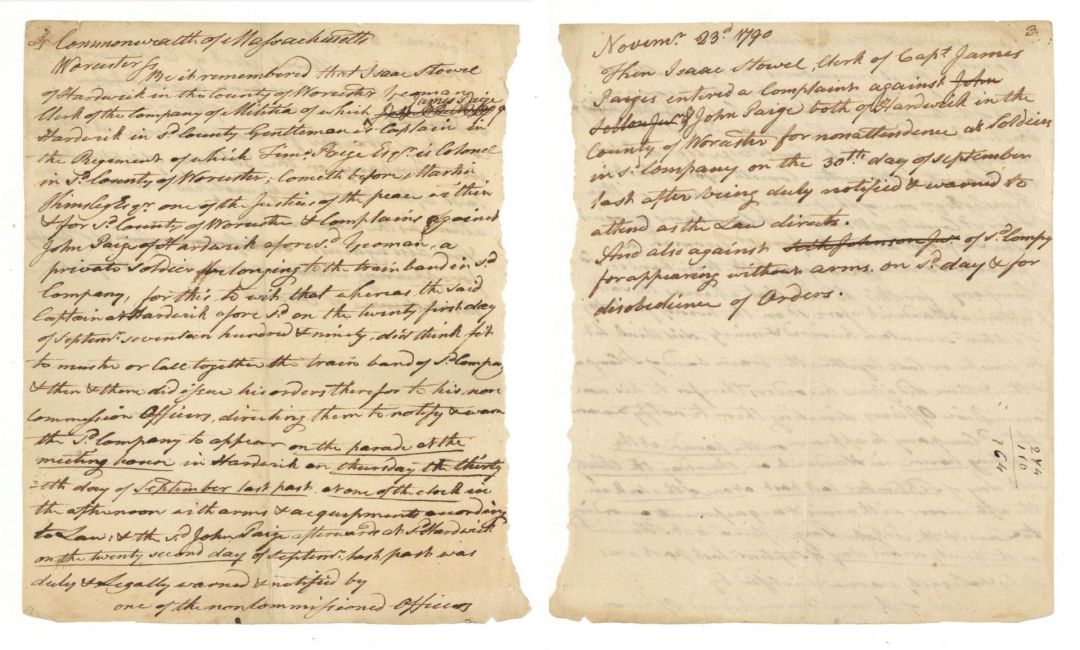 Commonwealth of Massachusetts
Worcester ss
Be it remembered that Isaac Stowel
of Hardwick in the County of Worcester Yeoman
Clerk of the Company of Militia of which James Paige of
Hardwick in Sd. County Gentleman is Captain in
the Regiment of which Timo. Paige Esqr. is Colonel
in Sd. County of Worcester; Cometh before Martin
Kinsley Esqr. one of the Justices of the peace within
& for Sd. County of Worcester & Complains against
John Paige of Hardwick aforesd. Yeoman, a
private Soldier belonging to the train band in sd
Company, for this to wit, that whereas the said
Captain at Hardwick afore sd. on the twenty first day
of Septemr. seventeen hundred & ninety, did think fit
to muster or call together the train band of Sd. Compa
& then & there did issue his orders therefor to his non
commission Officers, directing them to notify & warn
the Sd. Company to appear on the parade at the
meeting house in Hardwick on thursday the thirty
=eth day of September last past. at one of the clock in
the afternoon with arms & acquipments according
to Law; & the sd. John Paige afterwards at Sd. Hardwick
on the twenty second day of Septemr. last past was
duly & Legally warned & notified by
one of the noncommissioned Officers
3
Novemr. 23d. 1790
Then Isaac Stowel Clerk of Capt. James
Paiges entered a Complaint against John
Jur. & John Paige both of Hardwick in the
County of Worcester for nonattendence as Soldiers
in sd. Company on the 30th day of September
last after being duly notified & warned to
attend as the Law directs.
And also against Seth Johnson Jur. of Sd. Compy
for appearing without arms. on Sd. day & for
disobedience of Orders.
244
110
164